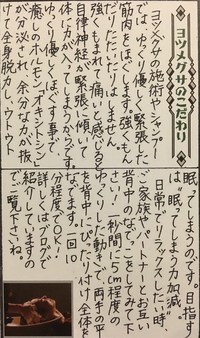 ヨツメグサのこだわり
ヨツメグサの施術やシャンプー
では、ゆっくり優しく緊張した
筋肉をほぐします。強くもん
だりたたいたりはしません。
強くもまれて痛いと感じると
自律神経が緊張して、
体に力が入ってしまうからです。
ゆっくり優しくほぐす事で、
癒しのホルモン「オキシトシン」
が分泌され、余分な力が抜
けて全身脱力し、ウトウト
眠ってしまうのです。目指す
は“眠ってしまう力加減”。
日常でリラックスしたい時、
ご家族やパートナーとお互い
背中のなでっこをしてみて下
さい！一秒間に5cm程度の
ゆっくりした動きで、両手の平
を背中にぴたり付け全体を
なでます。一回10
分程度でOK！
詳しくはブログで
紹介していますの
でご覧下さいね。